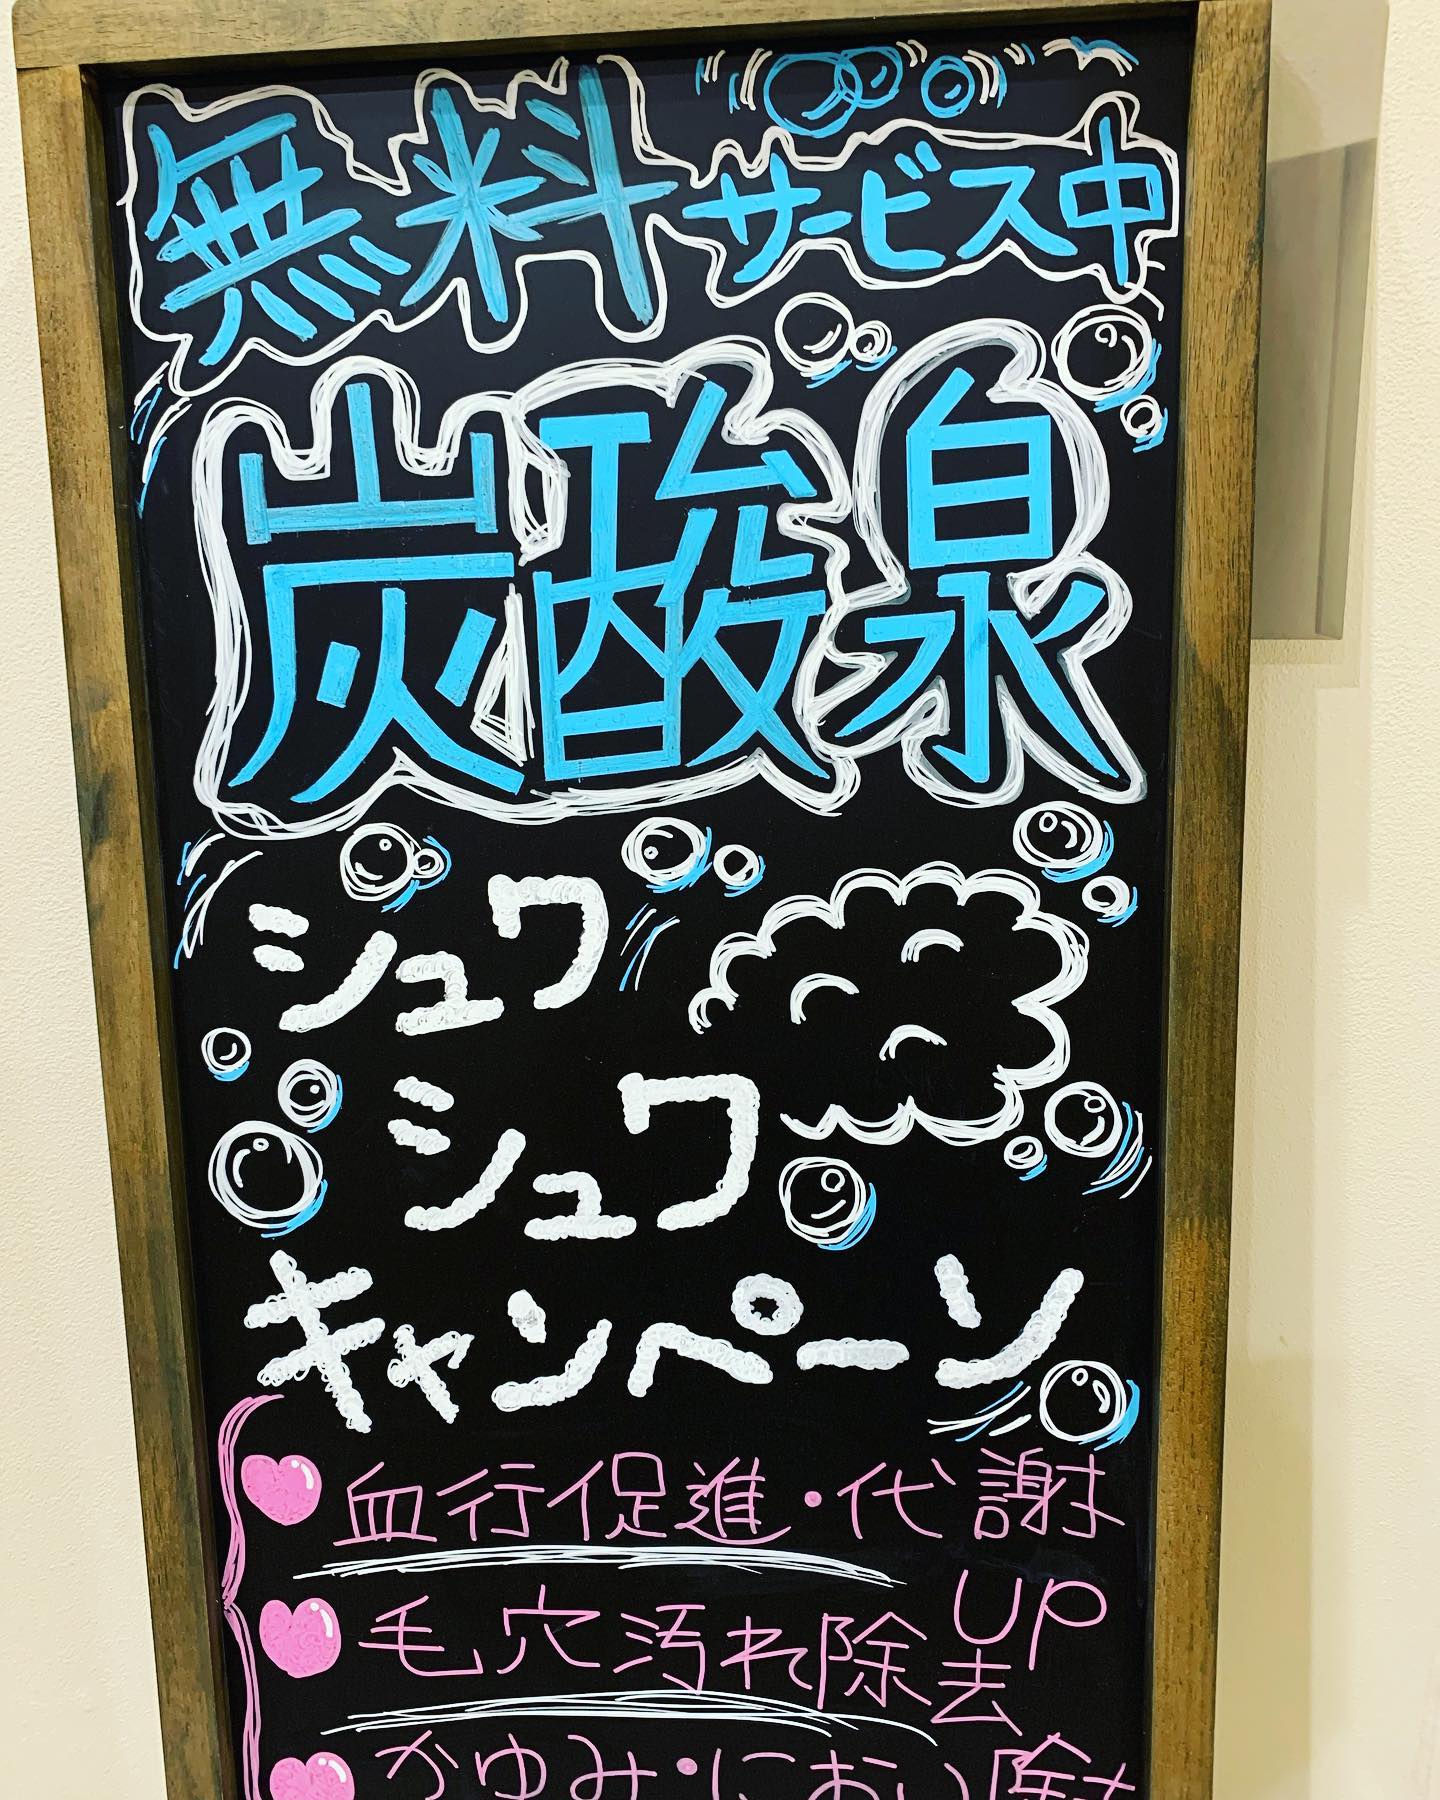 無料サービス中
炭酸泉
シュワ
シュワ
キャンペーン
血行促進・代謝UP
毛穴汚れ除去
かゆみ・におい除去